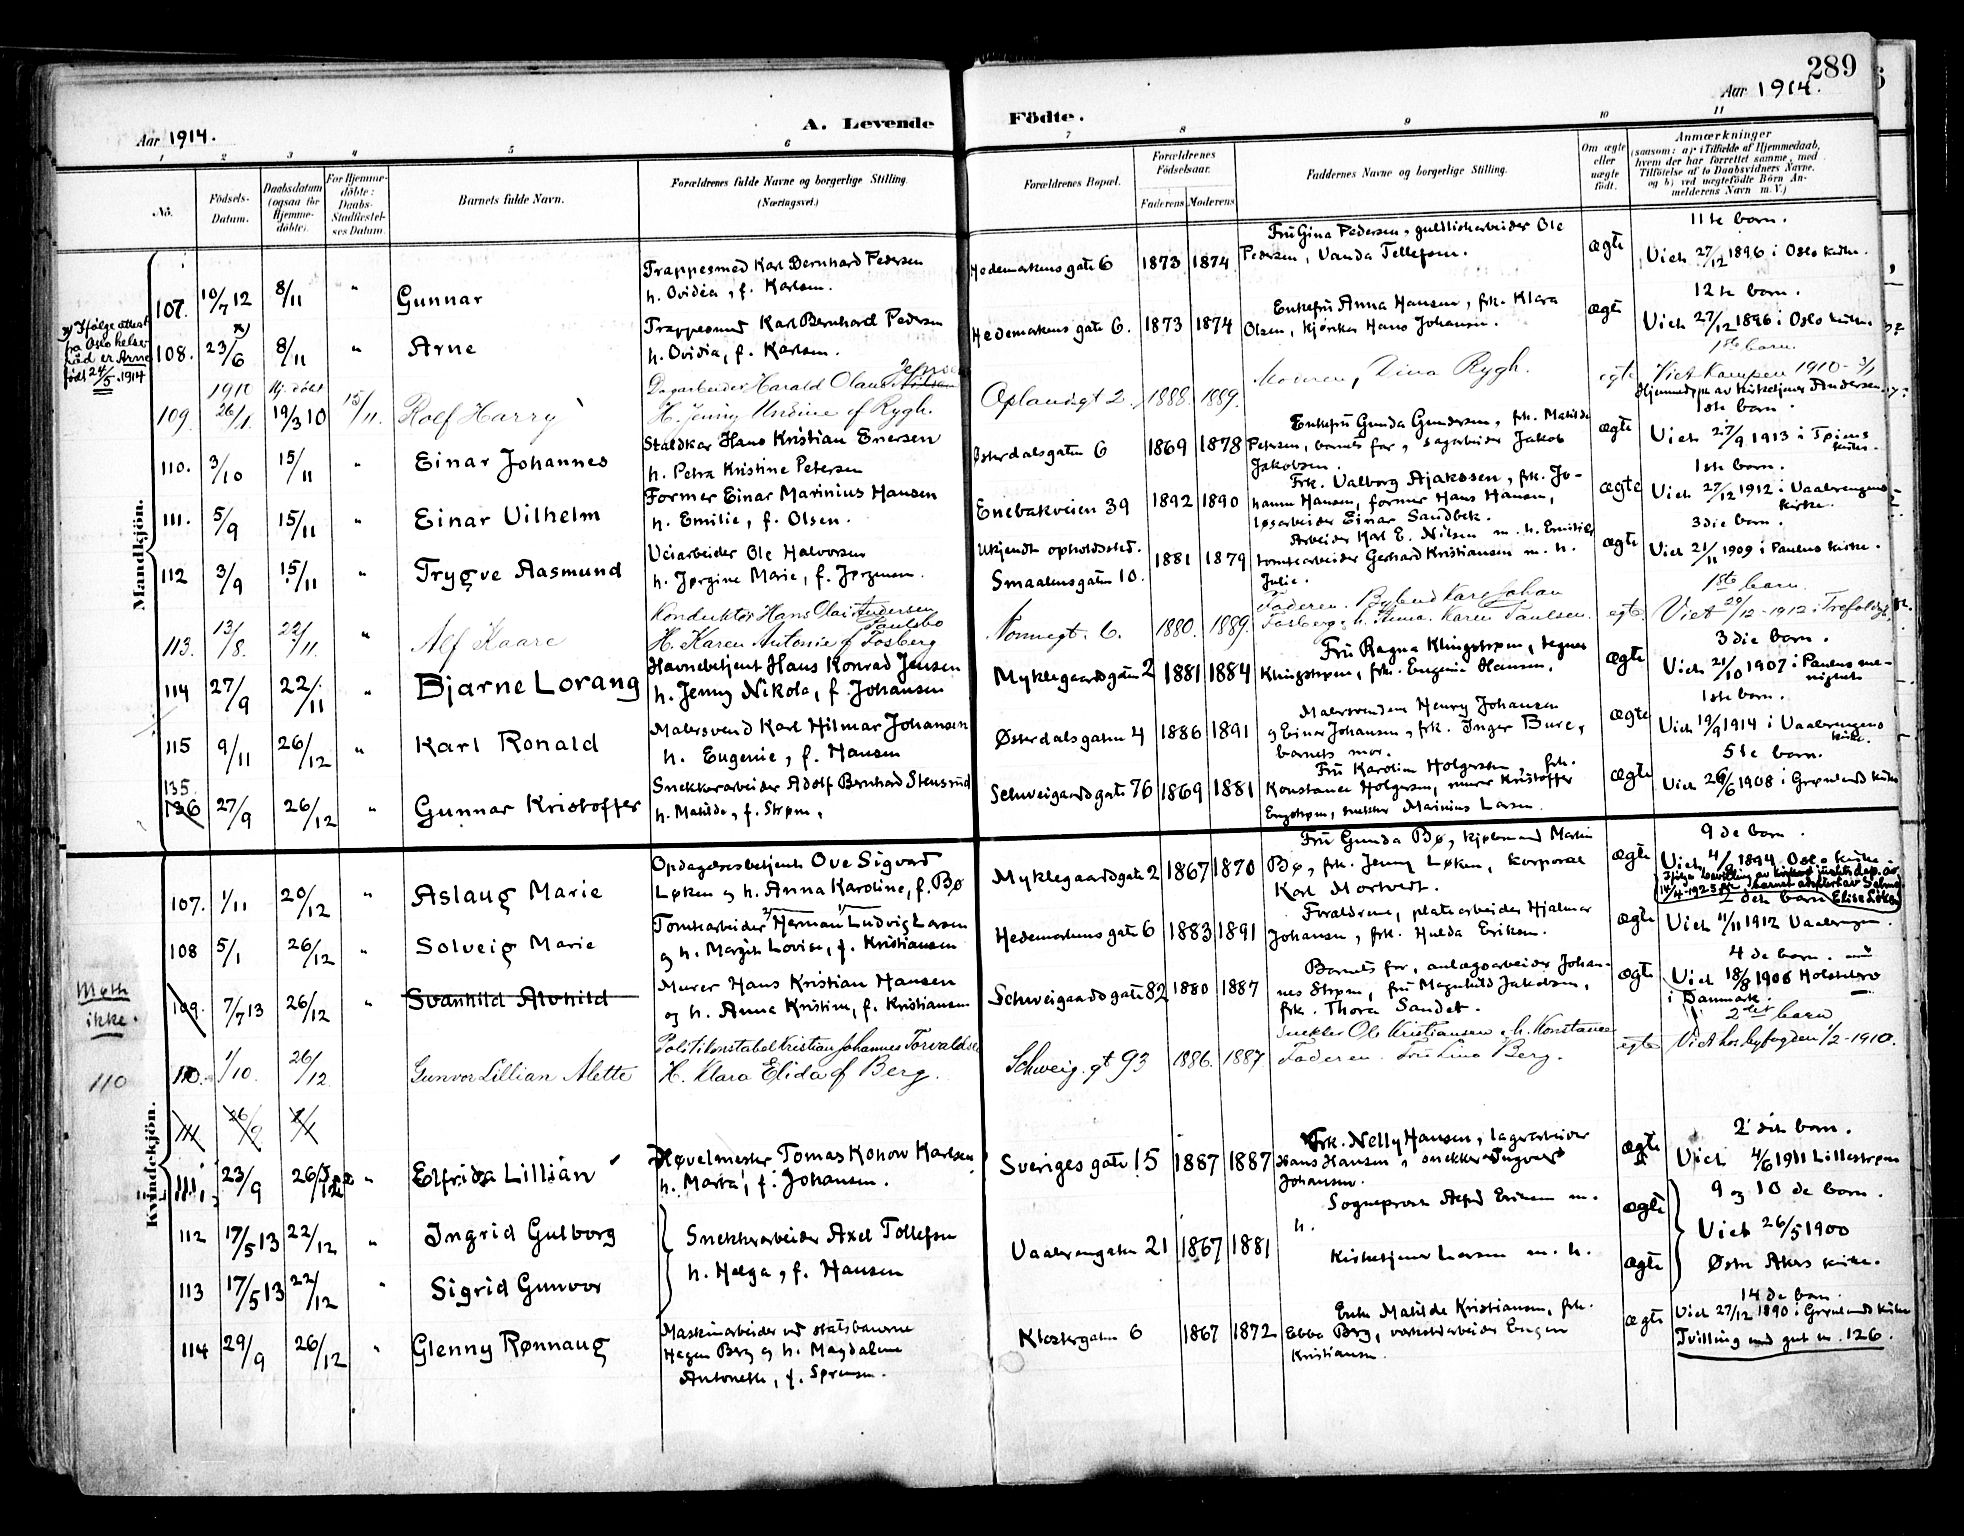 289
Aar 1914.
A. Levende
Födte.
Aar 1914.
1 2 3 4 5 6 7 8 9 10 11
No.
Födsels-Datum.
Daabsdatum (ogsaa for Hjemme-döbte).
For Hjemme-döbte: Daabs-Stadfæstel-ses Datum.
Barnets fulde Navn.
Forældrenes fulde Navne og borgerlige Stilling.
(Næringsvei.)
Forældrenes Bopæl.
Forældrenes Födselsaar.
Faderens Moderens
Faddernes Navne og borgerlige Stilling.
Om ægte eller uægte födt.
Anmærkninger
(saasom: a) i Tilfælde af Hjemmedaab, hvem der har forrettet samme, med Tilföielse af to Daabsvidners Navne, og b) ved uægtefödte Börn An-melderens Navn m. V.)
Mandkjön.
107. 10/7 12 8/11 " Gunnar
Trappesmed Karl Bernhard Pedersen
h. Ovidia, f. Karlsen.
Hedemarkens gate 6 1873 1874
Fru Gina Pedersen, guldlistarbeider Ole
Pedersen, Vanda Tellefsen.
ægte
11te barn.
Viet 27/12 1896 i Oslo kirke.
x) Ifølge attest
fra Oslo helse
råd er Arne
født 24/5.1914
108. 23/6 x) 8/11 " Arne
Trappesmed Karl Bernhard Pedersen
h. Ovidia, f. Karlsen.
Hedemarkens gate 6. 1873 1874
Enkefru Anna Hansen, frk. Klara
Olsen, kjørekar Hans Johansen.
ægte
12te barn.
Viet 27/12 1896 i Oslo kirke.
109. 1910 26/1 Hj. døbt 19/3 10 15/11. Rolf Harry
Dagarbeider Harald Olaus
H. Jenny Undine f Rygh.
Oplandgt 2. 1888. 1889.
Moren, Dina Rygh.
egte
1ste barn.
Viet Kampen 1910
Hjemmedøpt av kirketjener Andersen
110. 3/10 15/11 " Einar Johannes
Staldkar Hans Kristian Enersen
h. Petra Kristine Petersen
Østerdalsgaten 6 1869 1878
Enkefru Gunda Gundersen, frk. Matilde
Petersen, barnets far, sagarbeider Jakob
Jakobsen.
ægte
1ste barn.
Viet 27/9 1913 i Tøiens
kirke.
111. 5/9 15/11 " Einar Vilhelm
Former Einar Marinius Hansen
h. Emilie, f. Olsen.
Enebakveien 39 1892 1890
Frk. Valborg Ajakssen, frk. Jo-
hanne Hansen, former Hans Hansen,
løsarbeider Einar Sandbek.
ægte
1ste barn.
Viet 27/12 1912 i Vaalerengens
kirke.
112 3/9 15/11 " Trygve Aasmund
Veiarbeider Ole Halvorsen
h. Jørgine Marie, f. Jørgensen.
Ukjendt opholdssted.
Smaalensgaten 10. 1881 1879
Arbeider Karl E. Nilsen m. h. Emilie
tomtearbeider Gerhard Kristiansen m. h.
Julie.
ægte
3die barn.
Viet 21/11 1909 i Paulus kirke.
113. 13/8. 22/11. " Alf Kaare
Konduktør Hans Olai Andersen
Paulsbo
H. Karen Antonie f Fosberg
Nonnegt. 6. 1880. 1889.
Faderen. Johan
Fosberg. h. Anna. Karen Paulsen.
egte.
1ste barn.
Viet 29/12-1912 i Trefoldigh.
114 27/9 22/11 " Bjarne Lorang
Havnebetjent Hans Konrad Jensen
h. Jenny Nikola, f. Johansen
Myklegaardsgaten 2 1881 1884
Fru Ragna Klingstrøm, tegner
Klingstrøm, frk. Eugenie Hansen.
ægte
3die barn.
Viet 21/10 1907 i Paulus me-
nighet.
115 9/11 26/12 " Karl Ronald
Malersvend Karl Hilmar Johansen
h. Eugenie, f. Hansen
Østerdalsgaten 4 1886 1891
Malersvendene Henry Johansen
og Einar Johansen, frk. Inger Bure,
barnets mor.
ægte
1ste barn.
Viet 19/9 1914 i Vaalerengens
kirke.
135. 136 27/9 26/12 " Gunnar Kristoffer
Snekkerarbeider Adolf Bernhard Stensrud
h. Matilde, f. Strøm.
Schweigaardsgate 76 1869 1881
Fru Karoline Holgersen, frk.
Konstance Holgersen, murer Kristoffer
Engstrøm, snekker Marinius Larsen.
ægte
5te barn.
Viet 26/6 1908 i Grønlands kirke
Kvindekjön.
107. 1/11 20/12 " Aslaug Marie
Opdagelsesbetjent Ove Sigvard
Løken og h. Anna Karoline, f. Bø
Myklegaardsgate 2 1867 1870
Fru Gunda Bø, kjøbmand Martin
Bø, frk. Jenny Løken, korporal
Karl Mortvedt.
ægte
9de barn.
Viet 4/8 1894 Oslo kirke.
Ifølge bevilling av kirke og justisdep. av
14/4-1923 er barnet adoptert av Selma
Elise Løken
108 5/1 26/12 " Solveig Marie
Tomtearbeider Herman Ludvig Larsen
og h. Margit Lovise, f. Kristiansen
Hedemarkens gate 6 1883 1891
Foraldrene, platearbeider Hjalmar
Johansen, frk. Hulda Eriksen.
ægte
2det barn
Viet 11/11 1912 Vaalerengen.
Møtt
ikke.
109. 7/7 13 26/12 " Svanhild Alvhild
Murer Hans Kristian Hansen
og h. Anna Kristine, f. Kristiansen
Schweigaardsgate 82 1880 1887
Barnets far, anlægsarbeider Johan-
nes Strøm, fru Magnhild Jakobsen,
frk. Thora Sandet.
ægte
4de barn.
Viet 18/8 1906 Holstebro
i Danmark.
110 110. 1/10. 26/12. Gunvor Lillian Alette
Politikonstabel Kristian Johannes Torvaldsen
H. Klara Elida f Berg.
Schweig. gt 93 1886. 1887.
Snekker Ole Kristiansen. h. Konstance
Faderen. Fru Lina Berg.
egte
2det barn
Viet hos byfogden 1/2-1910.
111. 26/9
111. 23/9 26/12 " Elfrida Lillian
Høvelmester Tomas Konow Karlsen
h. Marta, f. Johansen.
Sveriges gate 15 1887 1887
Frk. Nelly Hansen, lagerarbeider
Hans Hansen, snekker Ingvar
Johansen.
ægte
2det barn.
Viet 4/6 1911 Lillestrøm
112 17/5 13 22/12 " Ingrid Gulborg
Snekkerarbeider Axel Tollefsen
h. Helga, f. Hansen
Vaalerengaten 21 1867 1881
Sogneprest Alfred Eriksen m.
h.
Kirketjener Larsen m. h.
ægte
9 og 10de barn.
Viet 26/5 1900
Østre Akers kirke.
113 17/5 13 22/12 " Sigrid Gunvor
ægte
114 29/9 26/12 " Glenny Rønnaug
Maskinarbeider ved statsbanerne
Hagen Berg og h. Magdalene
Antonette, f. Sørensen.
Klostergaten 6 1867 1872
Enke Matilde Kristiansen, frk.
Ebba Berg, verkstedarbeider Eugen
Kristiansen.
ægte
14de barn.
Viet 27/12 1890 i Grønlands kirke
Tvilling med gut nr. 126.